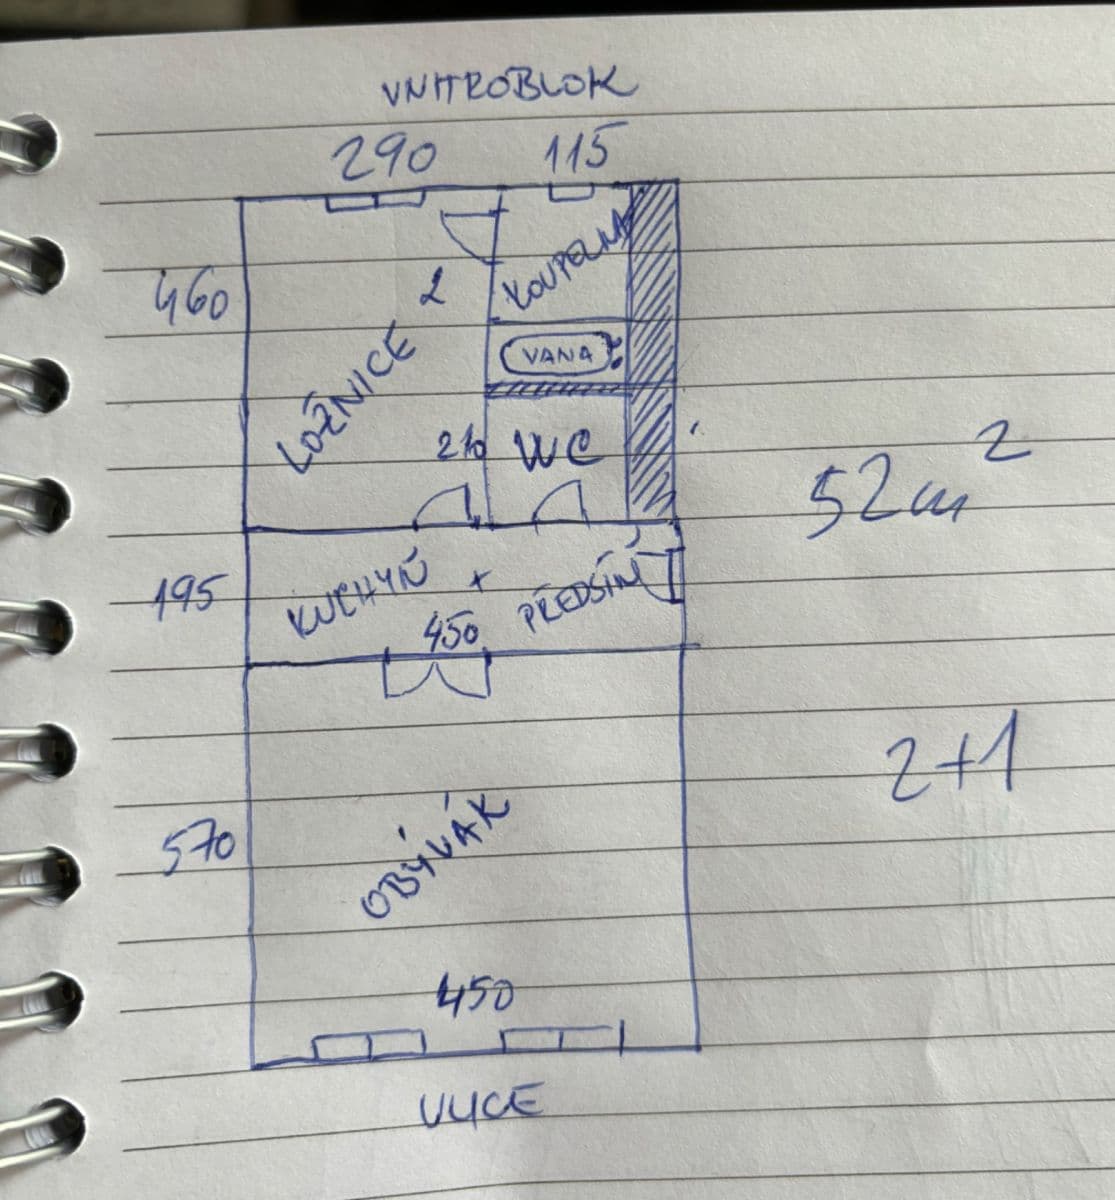 VNITROBLOK
290 115
460
KOUPELNA
LOŽNICE
VANA
WC
52m²
195
KUCHYŇ + PŘEDSÍŇ
450
2+1
570
OBÝVÁK
450
ULICE